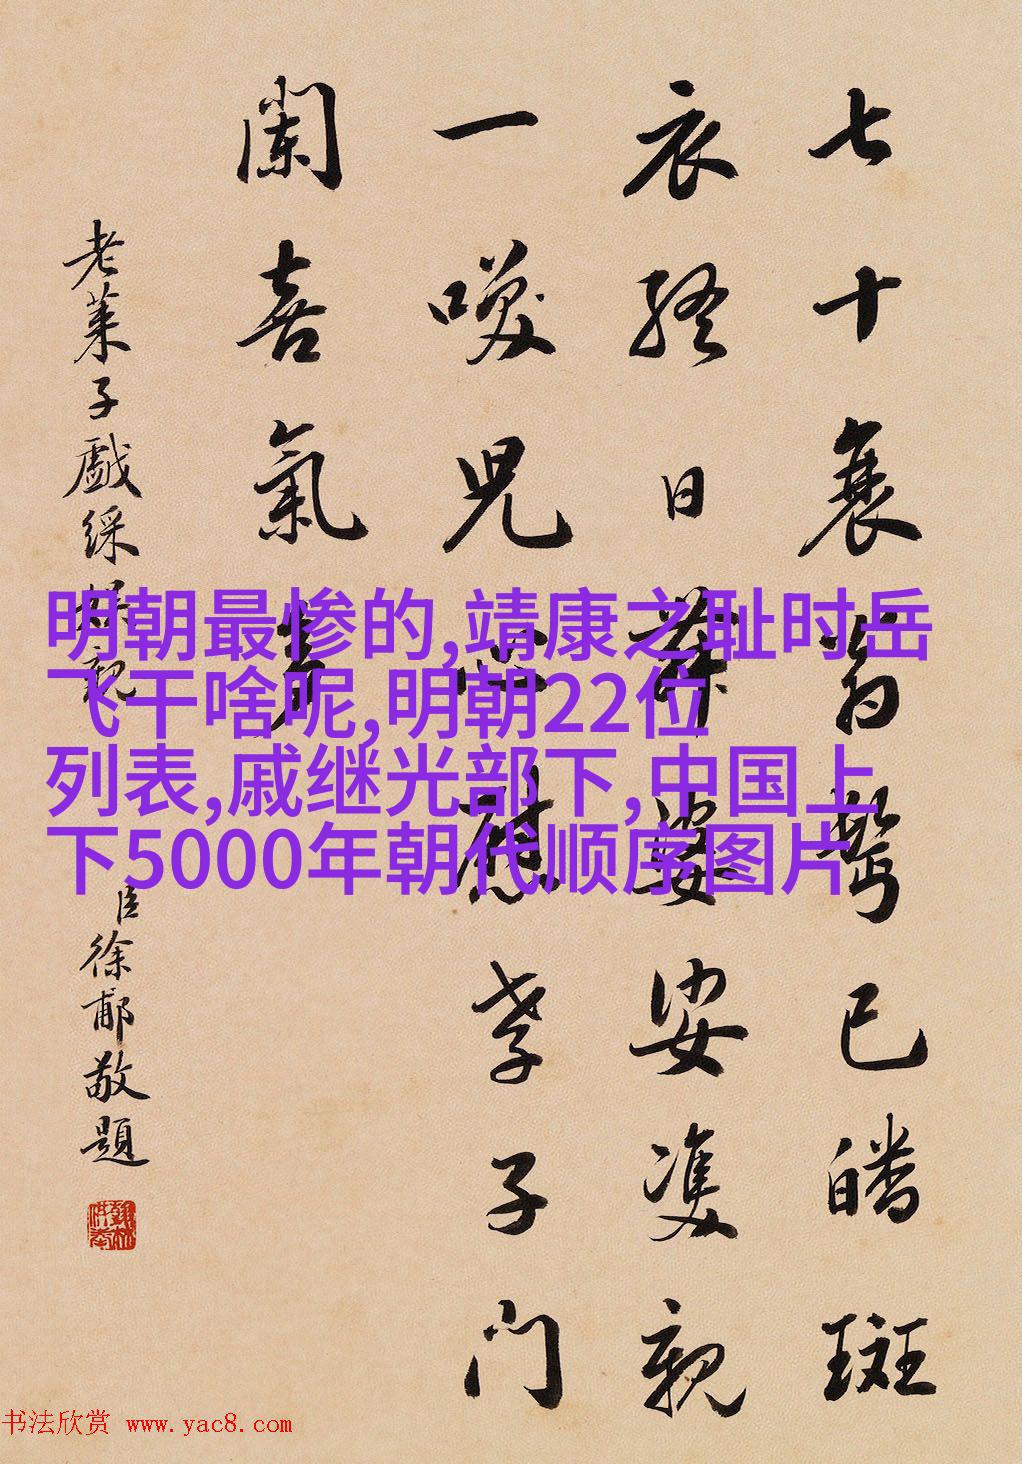 七十衰翁鬢已皤斑
衣終日舞婆娑雙親
一咲兒心慰孝子門
闌喜氣多
老萊子戲綵娛親
臣徐郙敬題
明朝最惨的,靖康之耻时岳
飞干啥呢,明朝22位
列表,戚继光部下,中国上
下5000年朝代顺序图片
书法欣赏 www.yac8.com